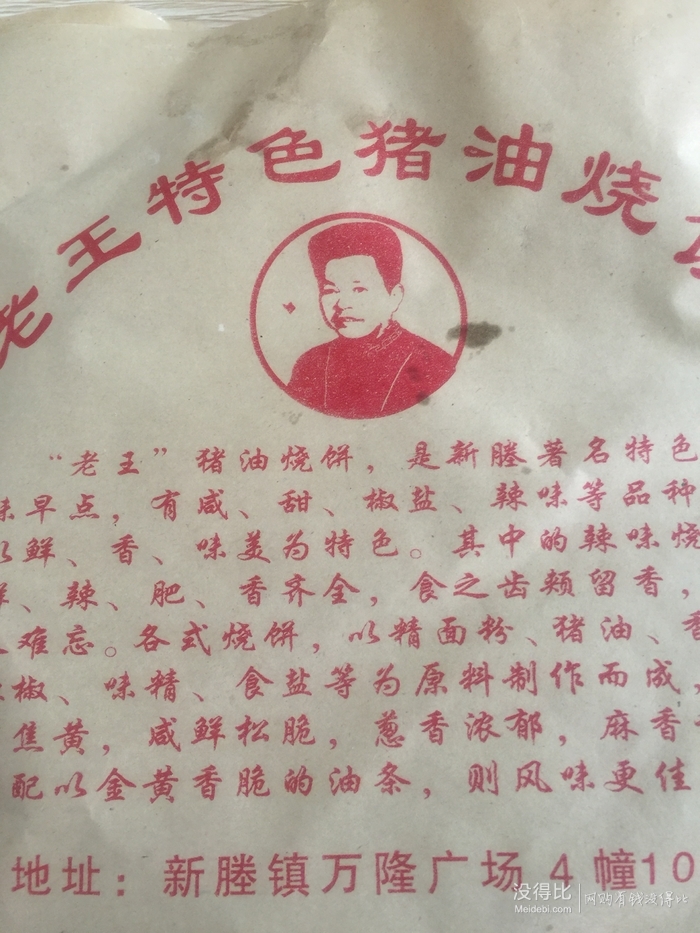 老王特色猪油烧
“老王”猪油烧饼，是新塍著名特色
味早点，有咸、甜、椒盐、辣味等品种
以鲜、香、味美为特色。其中的辣味烧
、辣、肥、香齐全，食之齿颊留香，
难忘。各式烧饼，以精面粉、猪油、香
椒、味精、食盐等为原料制作而成，
焦黄，咸鲜松脆，葱香浓郁，麻香
配以金黄香脆的油条，则风味更佳
地址：新塍镇万隆广场4幢10
没得比
Meidebi.com
网购有钱没得比